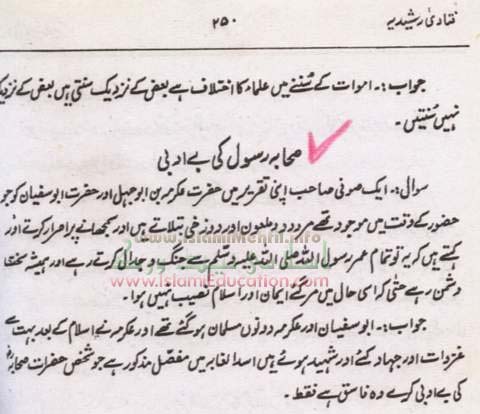 فتاویٰ رشیدیہ ۲۵۰
جواب:۔ اموات کے سُننے میں علماء کا اختلاف ہے بعض کے نزدیک سنتی ہیں بعض کے نزدیک
نہیں سُنتیں۔
صحابہ رسول کی بے ادبی
سوال:۔ ایک صوفی صاحب اپنی تقریر میں حضرت عکرمہ بن ابوجہل اور حضرت ابوسفیان کو جو
حضور کے وقت میں موجود تھے مردود و ملعون اور دوزخی بتلاتے ہیں اور سمجھانے پر اصرار کرتے اور
www.IslamiMehfil.info
کہتے ہیں کہ یہ تو تمام عمر رسول اللہ صلی اللہ علیہ وسلم سے جنگ و جدال کرتے رہے اور ہمیشہ سخت
www.IslamicEducation.com
دشمن رہے حتٰی کہ اسی حال میں مر گئے ایمان اور اسلام نصیب نہیں ہوا۔
جواب:۔ ابوسفیان اور عکرمہ دونوں مسلمان ہو گئے تھے اور عکرمہ نے اسلام کے بعد بہت سے
غزوات اور جہاد کئے اور شہید ہوئے ہیں اسد الغابہ میں مفصّل مذکور ہے جو شخص حضرات صحابہؓ
کی بے ادبی کرے وہ فاسق ہے فقط۔